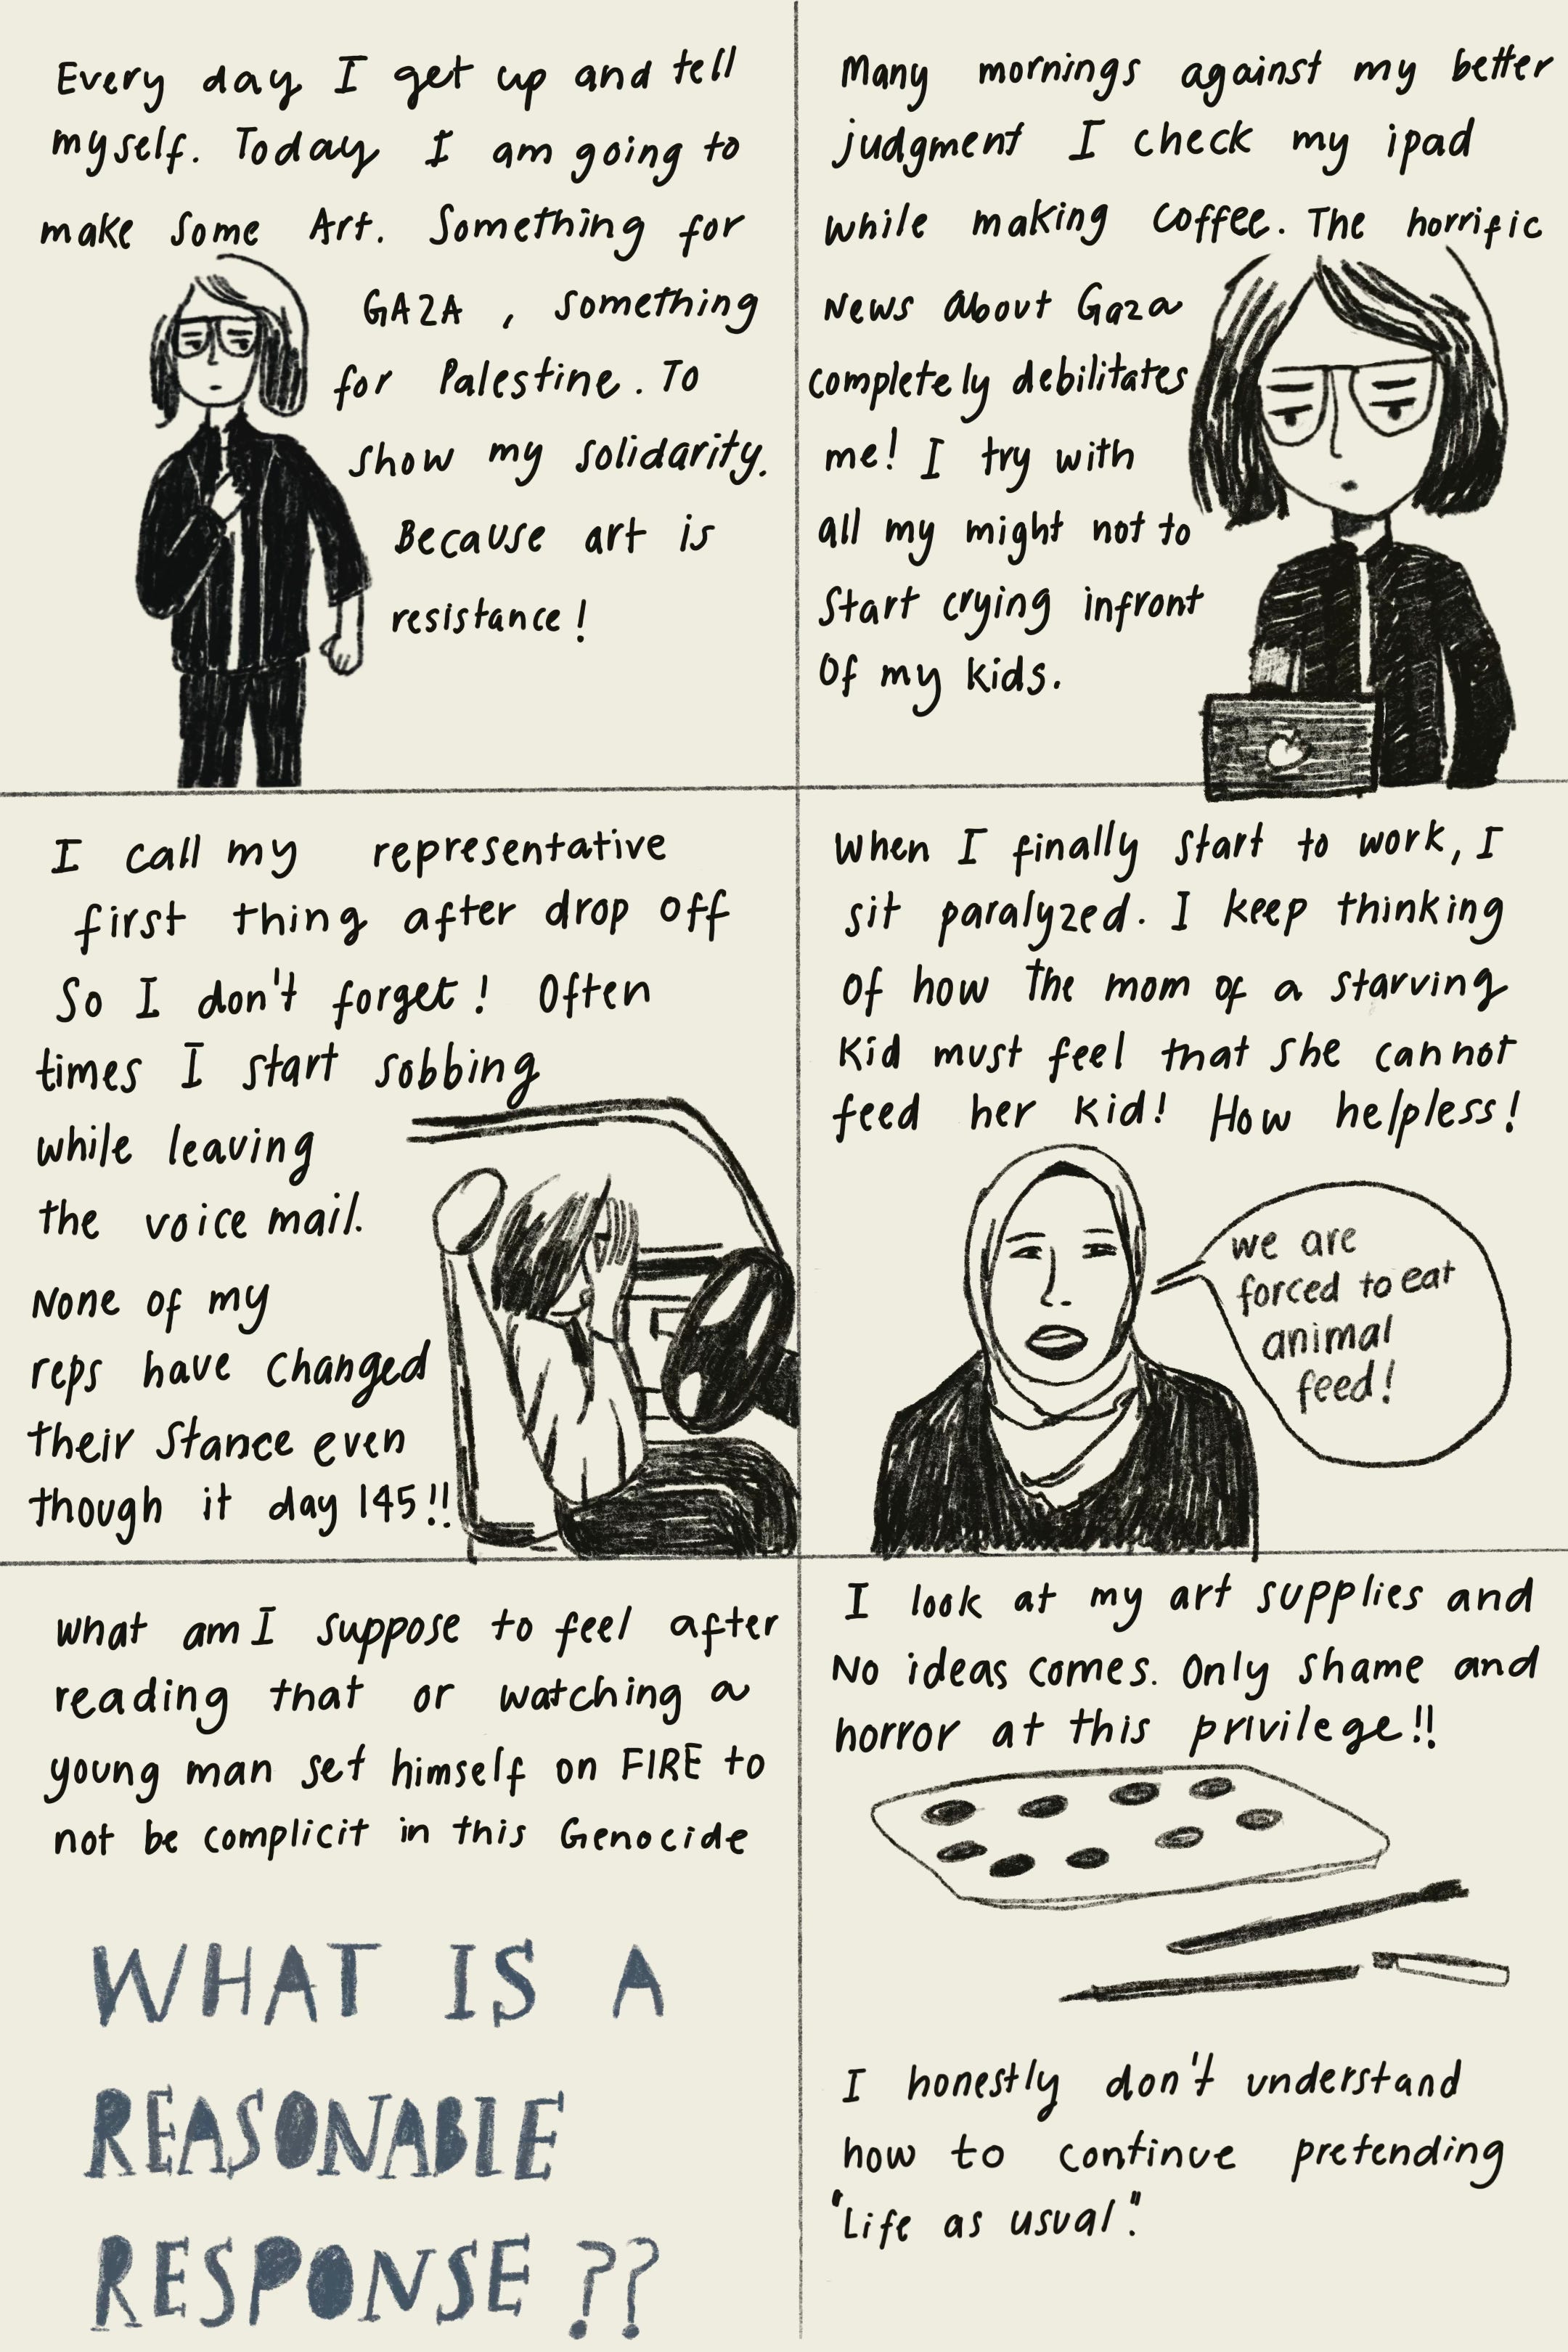 Every day I get up and tell
myself. Today I am going to
make some Art. Something for
GAZA , something
for Palestine. To
show my solidarity.
Because art is
resistance!
Many mornings against my better
judgment I check my ipad
while making coffee. The horrific
News about Gaza
completely debilitates
me! I try with
all my might not to
Start crying infront
Of my kids.
I call my representative
first thing after drop off
So I don't forget! Often
times I start sobbing
while leaving
the voice mail.
None of my
reps have changed
their stance even
though it day 145!!
When I finally start to work, I
sit paralyzed. I keep thinking
Of how the mom of a starving
Kid must feel that she cannot
feed her kid! How helpless!
we are
forced to eat
animal
feed!
what am I suppose to feel after
reading that or watching a
young man set himself on FIRE to
not be complicit in this Genocide
WHAT IS A
REASONABLE
RESPONSE ??
I look at my art supplies and
No ideas comes. Only shame and
horror at this privilege!!
I honestly don't understand
how to continue pretending
"Life as usual".